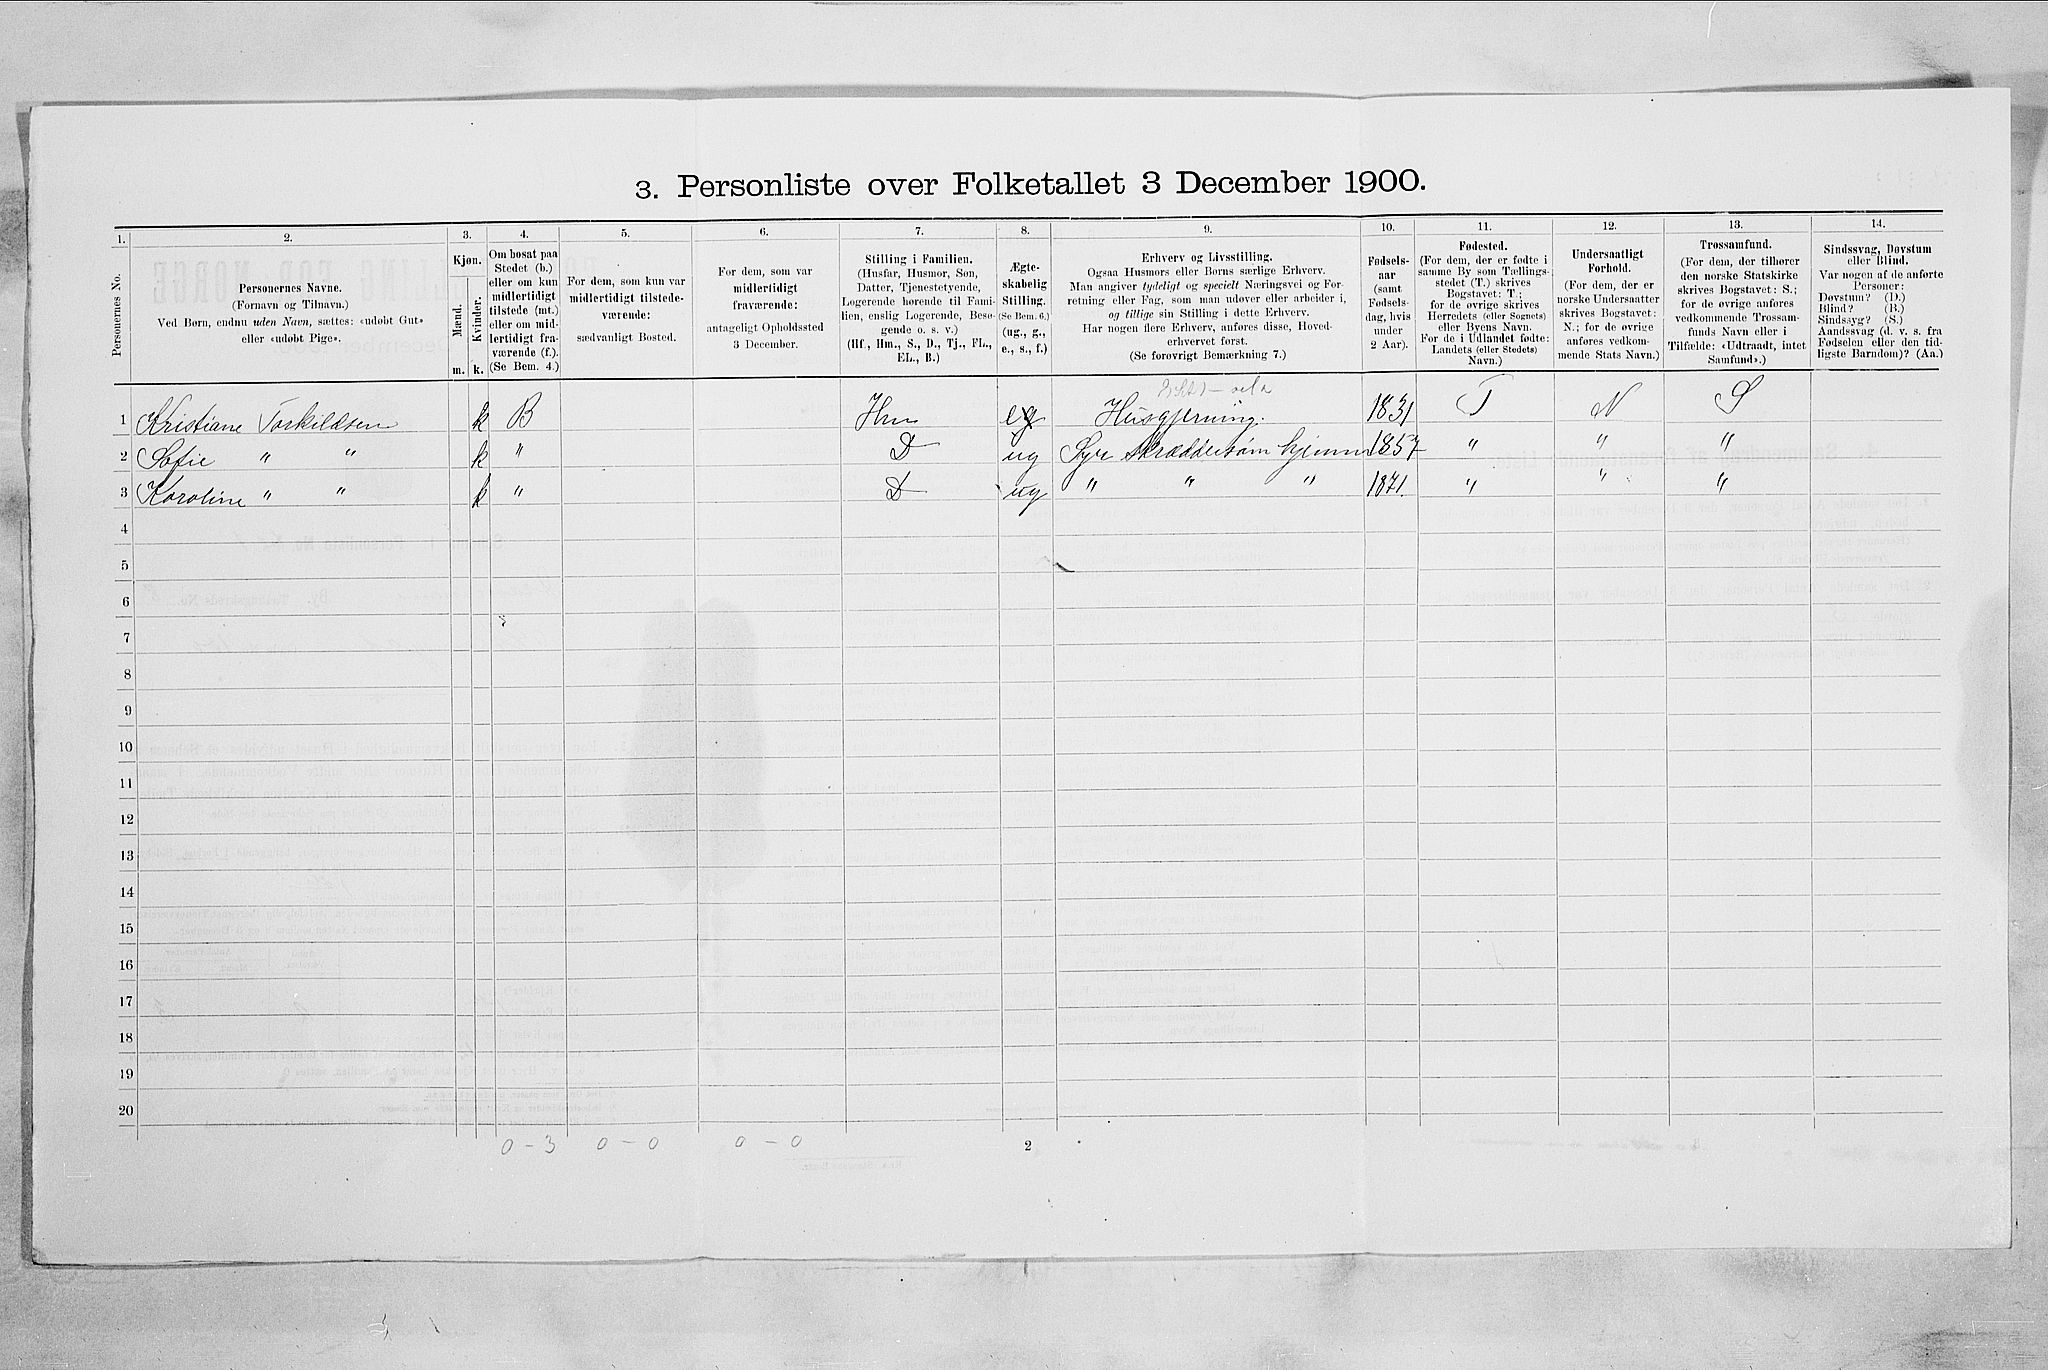 3. Personliste over Folketallet 3 December 1900.
1. 2. 3. 4. 5. 6. 7. 8. 9. 10. 11. 12. 13. 14.
Personernes No.
Personernes Navne.
(Fornavn og Tilnavn.)
Ved Børn, endnu uden Navn, sættes: «udøbt Gut»
eller «udøbt Pige».
Kjøn.
Mænd.
Kvinder.
m. k.
Om bosat paa
Stedet (b.)
eller om kun
midlertidigt
tilstede (mt.)
eller om mid-
lertidigt fra-
værende (f.).
(Se Bem. 4.)
For dem, som kun var
midlertidigt tilstede-
værende:
sædvanligt Bosted.
For dem, som var
midlertidigt
fraværende:
antageligt Opholdssted
3 December.
Stilling i Familien.
(Husfar, Husmor, Søn,
Datter, Tjenestetyende,
Logerende hørende til Fami-
lien, enslig Logerende, Besø-
gende o. s. v.)
(Hf., Hm., S., D., Tj., FL.,
EL., B.)
Ægte-
skabelig
Stilling.
(Se Bem. 6.)
(ug., g.,
e., s., f.)
Erhverv og Livsstilling.
Ogsaa Husmors eller Børns særlige Erhverv.
Man angiver tydeligt og specielt Næringsvei og For-
retning eller Fag, som man udøver eller arbeider i,
og tillige sin Stilling i dette Erhverv.
Har nogen flere Erhverv, anføres disse, Hoved-
erhvervet først.
(Se forøvrigt Bemærkning 7.)
Fødsels-
aar
(samt
Fødsels-
dag, hvis
under
2 Aar).
Fødested.
(For dem, der er fødte i
samme By som Tællings-
stedet (T.) skrives
Bogstavet: T.;
for de øvrige skrives
Herredets (eller Sognets)
eller Byens Navn.
For de i Udlandet fødte:
Landets (eller Stedets)
Navn.)
Undersaatligt
Forhold.
(For dem, der er
norske Undersaatter
skrives Bogstavet:
N.; for de øvrige
anføres vedkom-
mende Stats Navn.)
Trossamfund.
(For dem, der tilhører
den norske Statskirke
skrives Bogstavet: S.;
for de øvrige anføres
vedkommende Trossam-
funds Navn eller i
Tilfælde: «Udtraadt, intet
Samfund».)
Sindssvag, Døvstum
eller Blind.
Var nogen af de anførte
Personer:
Døvstum? (D.)
Blind? (B.)
Sindssyg? (S.)
Aandssvag (d. v. s. fra
Fødselen eller den tid-
ligste Barndom)? (Aa.)
1 Kristiane Torkildsen k B Hm e Husgjerning. 1831 T N S
2 Sofie " " k " D ug Syr skræddersøm hjemme 1857 " " "
3 Karoline " " k " D ug " " " 1871. " " "
4
5
6
7
8
9
10
11
12
13
14
15
16
17
18
19
20
0 - 3 0 - 0 0 - 0 2